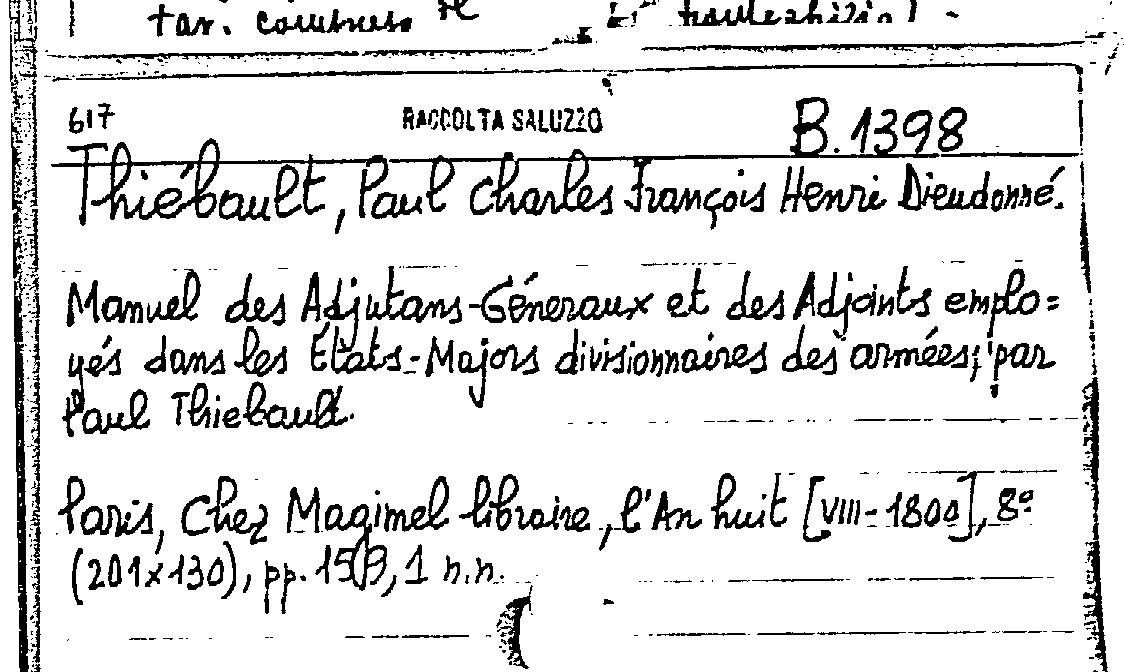 tav. comprese
617 RACCOLTA SALUZZO B.1398
Thiébault, Paul Charles François Henri Dieudonné.
Manuel des Adjutans-Géneraux et des Adjoints emplo=
yés dans les États-Majors divisionnaires des armées; par
Paul Thiebault.
Paris, Chez Magimel libraire, l'An huit [VIII-1800], 8º
(201x130), pp. 159, 1 n.n.